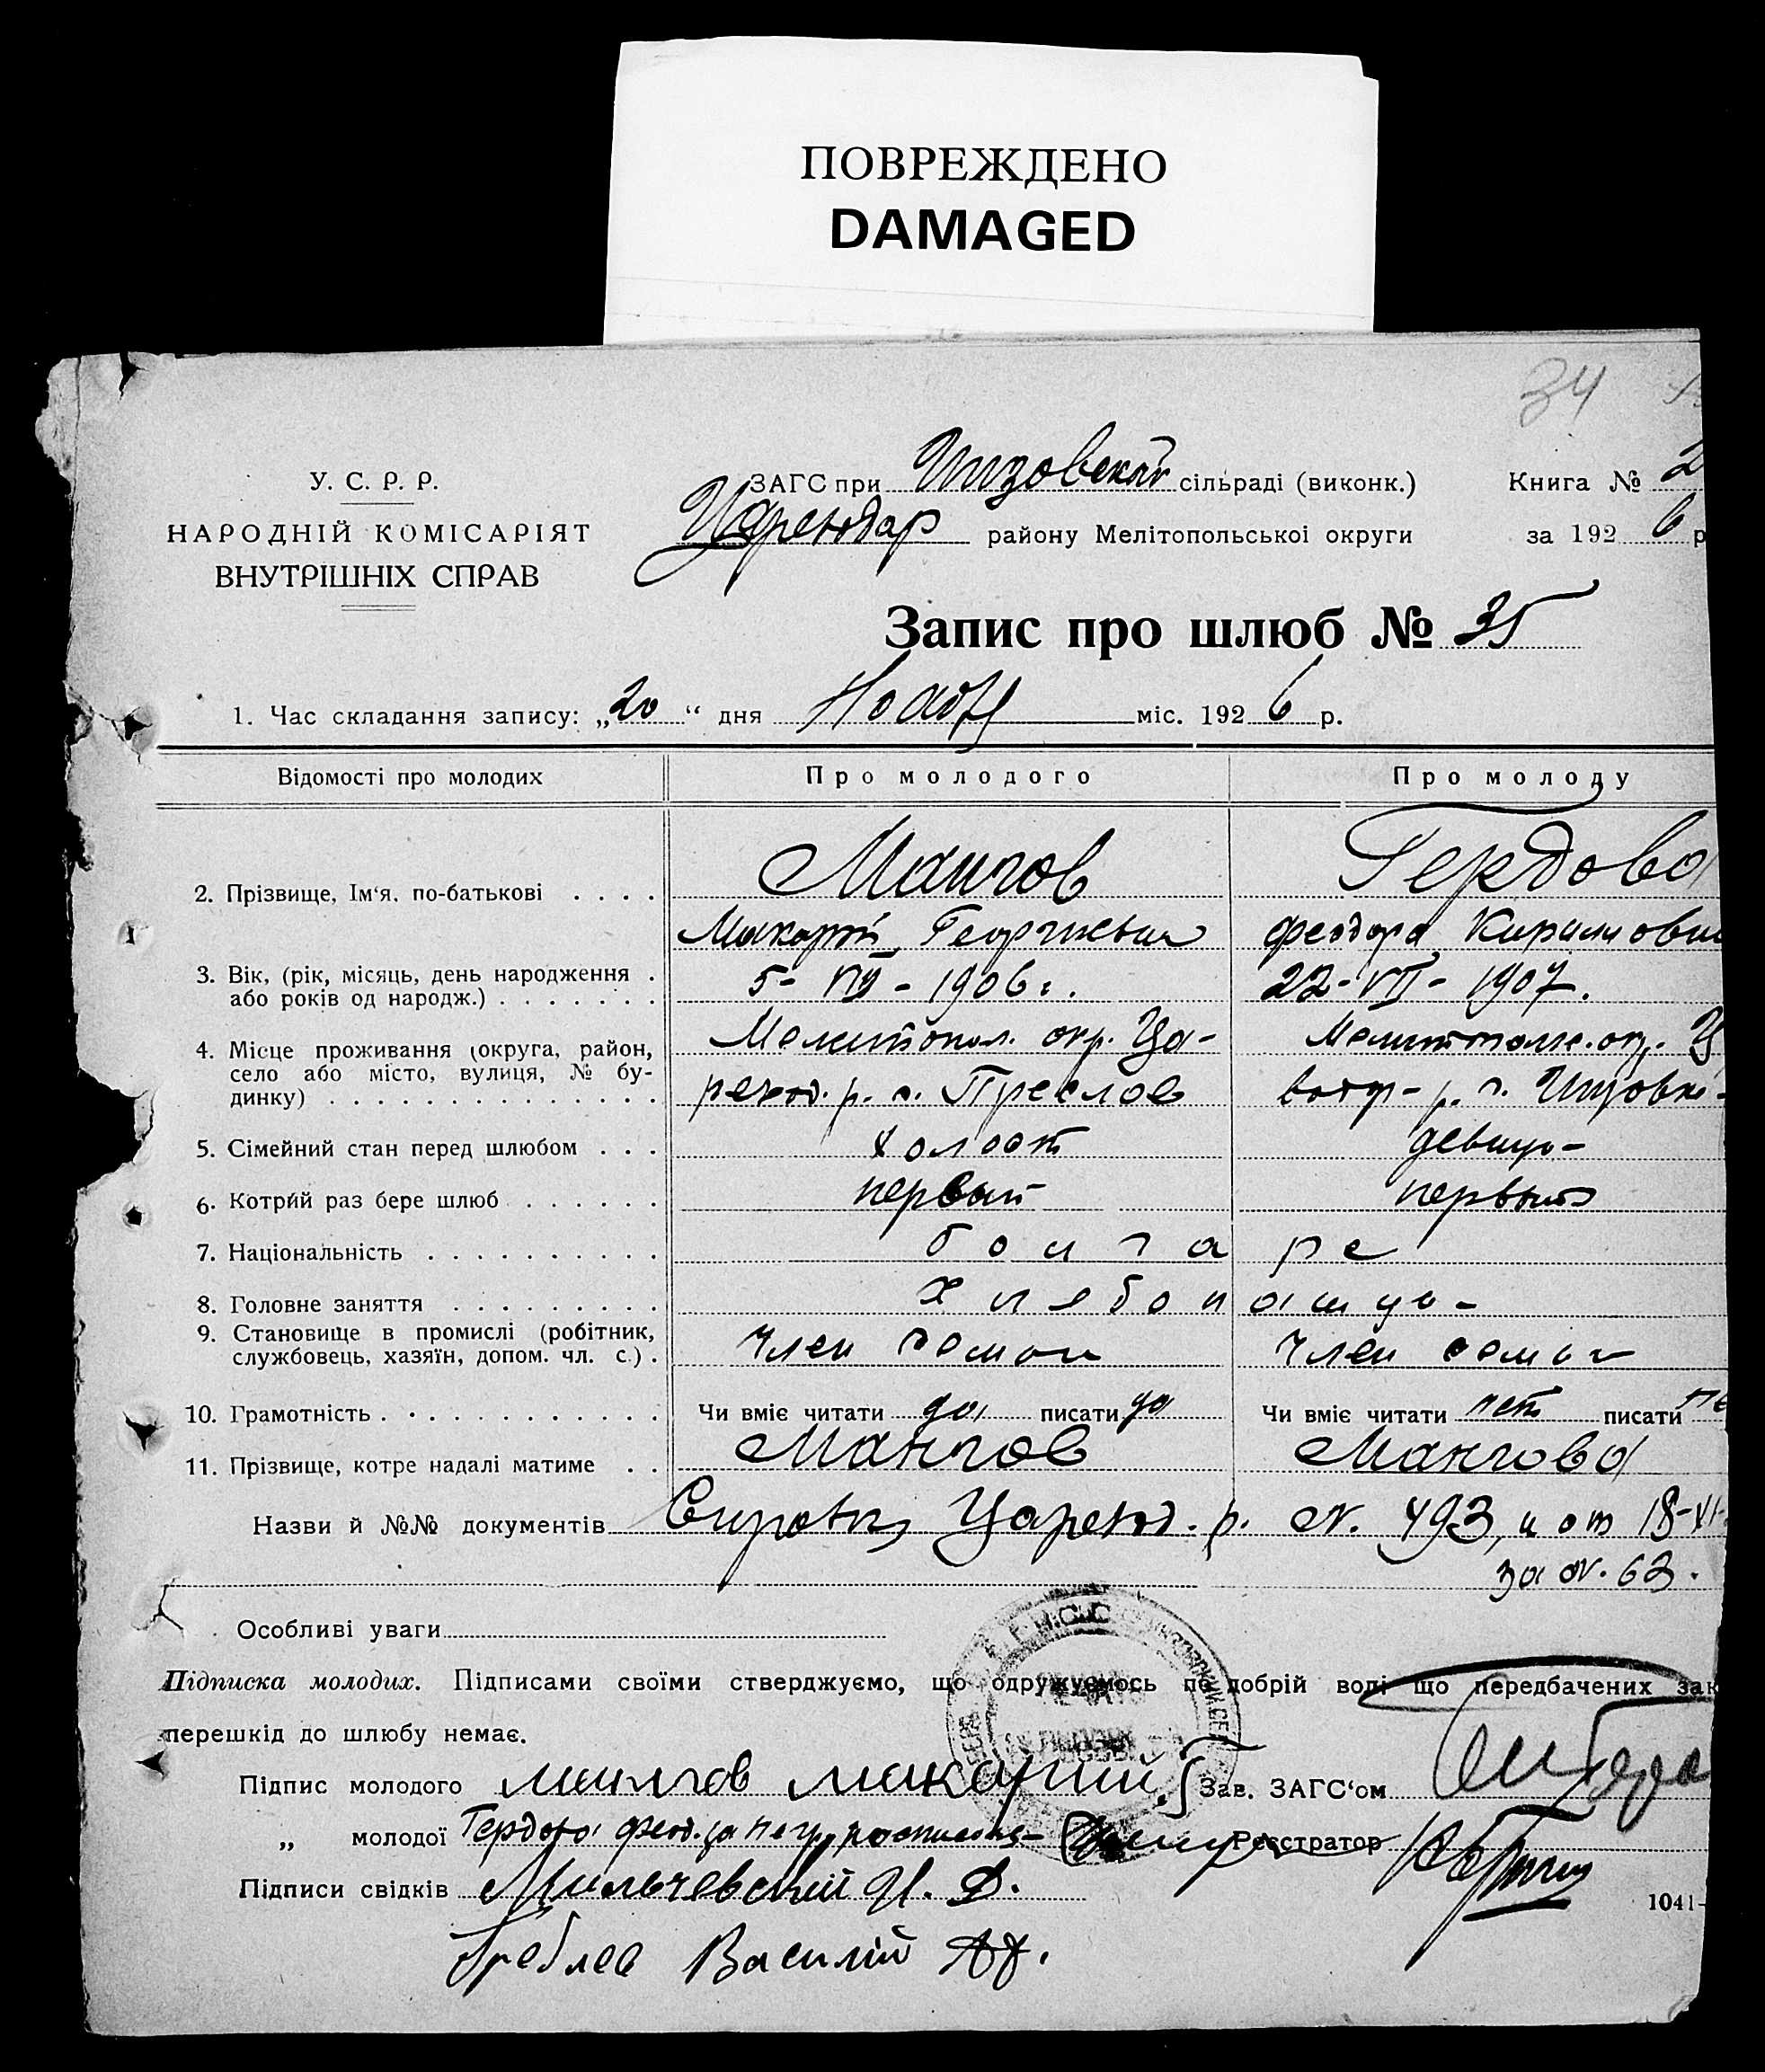 ПОВРЕЖДЕНО
DAMAGED
34
У. С. Р. Р.
НАРОДНІЙ КОМІСАРІЯТ
ВНУТРІШНІХ СПРАВ
ЗАГС при сільраді (виконк.)
району Мелітопольської округи
Книга № 2
за 192 6 р
Запис про шлюб № 35
1. Час складання запису: „20“ дня Ноября міс. 192 6 р.
Відомості про молодих Про молодого Про молоду
2. Прізвище, Ім‘я, по-батькові . . . . Мангов Гердова
Макарий Георгиевич Феодора Кирилловн
3. Вік, (рік, місяць, день народження . 5- - 1906 г. 22-VII- 1907.
або років од народж.) . . . . . . .
4. Місце проживання (округа, район, Мелитопол. окр. Ца-
село або місто, вулиця, № бу- р. с. Преслов
динку) . . . . . . . . . . . . . .
5. Сімейний стан перед шлюбом . . . холост девица
6. Котрий раз бере шлюб . . . . . . первый первый
7. Національність . . . . . . . . . . болгаре
8. Головне заняття . . . . . . . . . хлебопашцы
9. Становище в промислі (робітник, член семьи член семьи
службовець, хазяїн, допом. чл. с.) .
10. Грамотність . . . . . . . . . . . . Чи вміє читати да писати да Чи вміє читати нет писати не
11. Прізвище, котре надалі матиме . . Мангов Мангова
Назви й №№ документів р. N. 493, и от 18-XI-
за N. 63.
Особливі уваги
Підписка молодих. Підписами своїми стверджуємо, що одружуємось по добрій волі що передбачених зак
перешкід до шлюбу немає.
Підпис молодого Мангов Макарий Зав. ЗАГС‘ом
„ молодої Гердова Реєстратор
Підписи свідків Мильчевский И. Д.
1041-
Василий